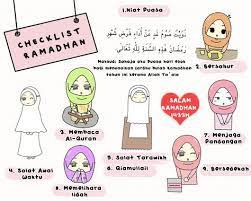 CHECKLIST
RAMADHAN
1.Niat Puasa
نَوَيْتُ صَوْمَ غَدٍ عَنْ أَدَاءِ فَرْضِ شَهْرِ
رَمَضَانَ هَذِهِ السَّنَةِ لِلَّهِ تَعَالَى
Maksud: Sahaja aku Puasa hari esok
bagi menunaikan fardhu bulan Ramadhan
tahun ini kerana Allah Ta'ala
2. Bersahur
3. Membaca
Al-Quran
SALAM
RAMADHAN
4. Solat Awal
Waktu
5. Solat Tarawikh
6. Qiamullail
7. Menjaga
Pandangan
8. Memelihara
Lidah
9. Bersedekah